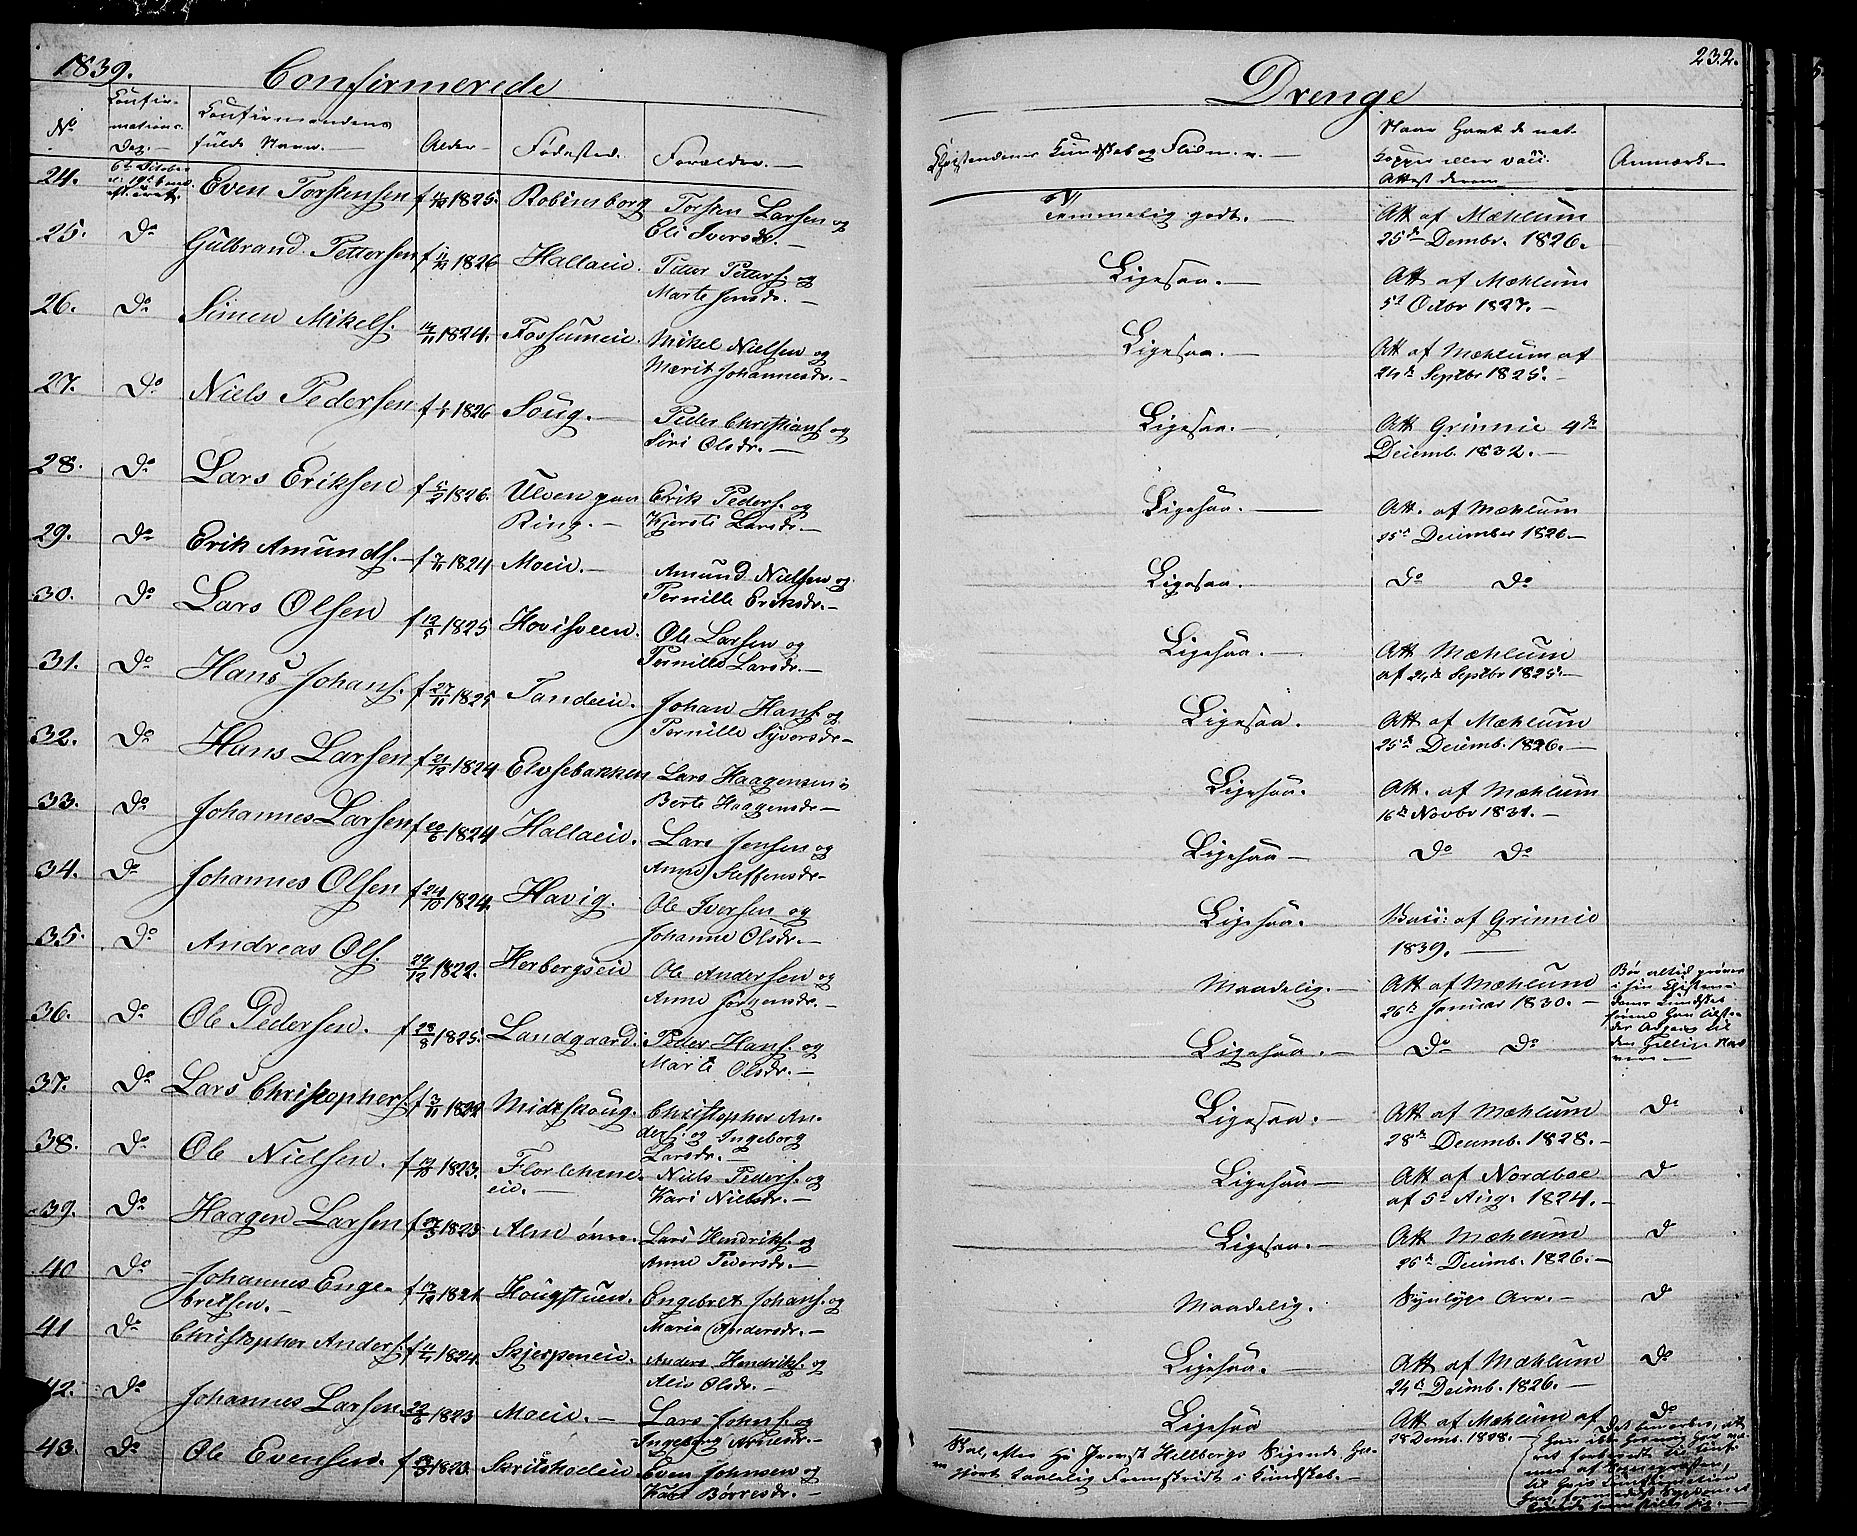 1839.
Confirmerede
Drenge
232.
No
Confir-
mations
Dag.
Confirmandens
fulde Navn.
Alder
Fødested.
Forældre.
Christendoms Kundskab og Flid m. v.
Naar havt de nat.
kopper eller vacc.
Attest derom
Anmærk
24. Even Torstensen f 1825. Robinsborg Torsten Larsen og
Eli Iversdr. Temmelig godt. Att af Mæhlum
25de Dembr. 1826.
25. Do Gulbrand Pettersen f 1826 Hallaeie. Petter Petters. og
Marte Jensdr. Ligesaa. Att af Mæhlum
5te Octbr 1827.
26. Do Simen Mikels. 1824. Fossumeie. Mikel Nielsen og
Marit Johannesdr. Ligesaa. Att af Mæhlum af
24de Septbr 1825.
27. Do Niels Pedersen f 1826 Soug. Peder Christians. og
Siri Olsdr. Ligesaa. Att Grinnie 4de
Decemb. 1832.
28. Do Lars Eriksen f 1826. Ulven paa
Ring. Erik Peders. og
Kjersti Larsdr. Ligesaa. Att. af Mæhlum
25de December 1826.
29. Do Erik Amunds. f 7/11 1824 Moeie. Amund Nielsen og
Pernille Eriksdr. Ligesaa. Do Do
30. Do Lars Olsen f 12/5 1825 Hovisveen. Ole Larsen og
Pernille Larsdr. Ligesaa. Att Mæhlum
af 24de Septbr 1825.
31. Do Hans Johans. f 27/11 1825 Tandeie. Johan Hans. og
Pernille Syversdr. Ligesaa. Att af Mæhlum
25de Decemb. 1826.
32. Do Hans Larsen f 21/12 1824 Elvsebakken Lars Haagensen
Berte Haagensdr. Ligesaa. Att. af Mæhlum
16de Novbr 1831.
33. Do Johannes Larsen f 1824 Hallaeie. Lars Jensen og
Anne Steffensdr. Ligesaa Do Do
34. Do Johannes Olsen f 24/10 1824. Havig. Ole Iversen og
Johanne Olsdr. Ligesaa. Vacc: af Grinnie
1839.
35. Do Andreas Ols. 29/12 1822. Herbergseie Ole Andersen og
Anne Jörgensdr. Maadelig. Att af Mæhlum
26de Januar 1830. Bör altid pröves
i sin Christen-
doms Kundskab
förend han tilste-
des Adgang til
den hellige Nad-
vere
36. Do Ole Pedersen. f 23/8 1825. Landgaard. Peder Hans. og
Marte Olsdr. Ligesaa. Do Do
37. Do Lars Christophers. f 3/11 1822 Midtskoug. Christopher An-
ders. og Ingeborg
Larsdr. Ligesaa. Att af Mæhlum
28de Decemb. 1828. Do
38. Do Ole Nielsen. f 1823. Niels Peders. og
eie. Kari Nielsdr. Ligesaa Att af Nordboe
af 5te Aug. 1824. Do
39. Do Haagen Larsen f 1823 Alm övre. Lars Hendriks. og
Anne Pedersdr. Ligesaa. Att Mæhlum
26de Decemb. 1826. Do
40 Do Johannes Enge-
bretsen. f 1824 Hougstuen. Engebret Johans. og
Maria Andersdr. Maadelig. Synlige Arr. Do
41 Do Christopher Anders. f 1824. Skjerpeneie. Anders Hendriks. og
Alis Olsdr. Ligesaa. Att af Mæhlum
24de Decemb. 1826. Do
42. Do Johannes Larsen. 1823 Moeie. Lars Johns. og
Ingeborg Arnesdr. Ligesaa Att af Mæhlum af
28 Decmb. 1828. Do
43. Do Ole Evensen. f 1823. Even Johnsen og
Kari Börresdr. Skal, efter Hr Provst Hellbergs Sigende ha-
ve gjort taalelig Fremskridt i Kundskab.